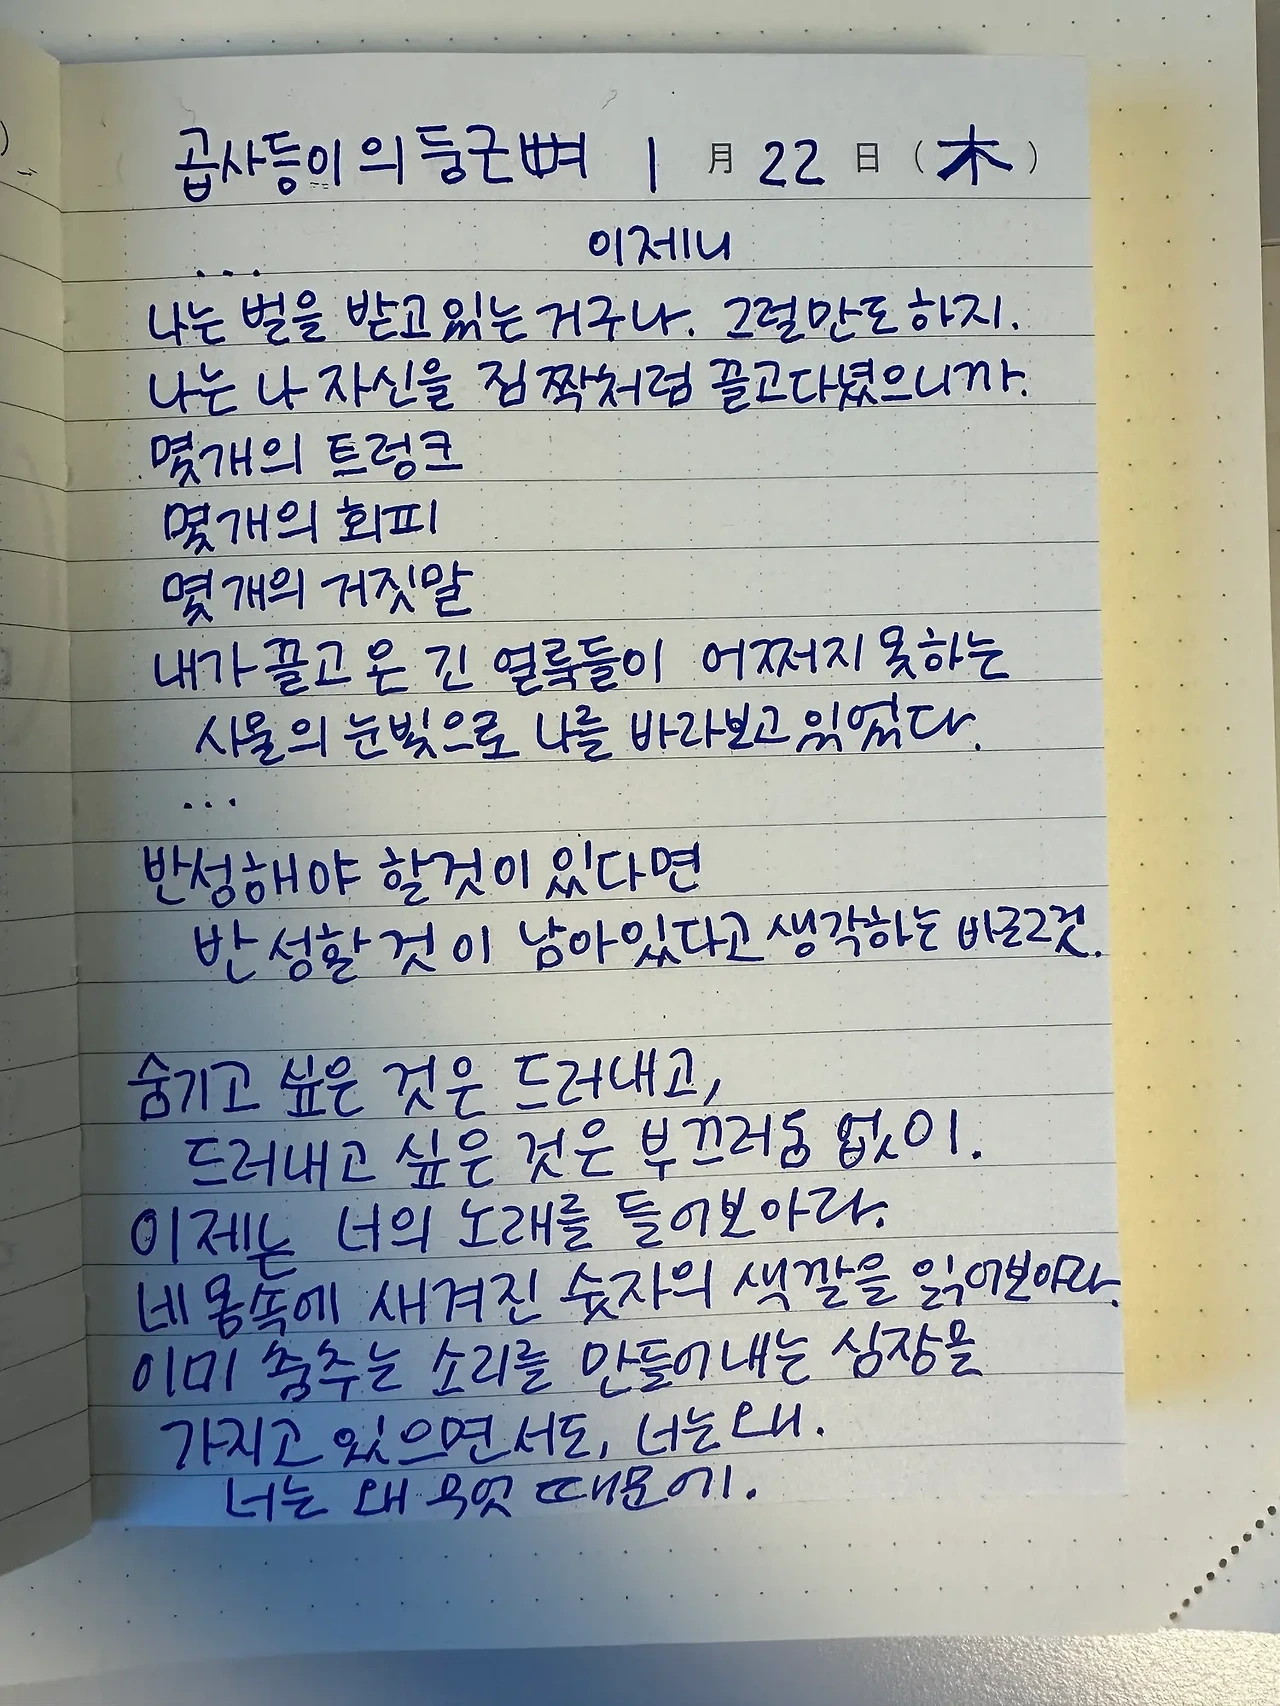 곱사등이의 둥근뼈 1 月 22 日 (木)
이제니
...
나는 벌을 받고있는거구나. 그럴만도하지.
나는 나 자신을 짐짝처럼 끌고다녔으니까.
몇개의 트렁크
몇개의 회피
몇개의 거짓말
내가 끌고 온 긴 얼룩들이 어쩌지 못하는
사물의 눈빛으로 나를 바라보고있었다.
...
반성해야 할것이 있다면
반성할 것이 남아있다고 생각하는 바로그것.
숨기고 싶은 것은 드러내고,
드러내고 싶은 것은 부끄러움 없이.
이제는 너의 노래를 들어보아라.
네 몸속에 새겨진 숫자의 색깔을 읽어보아라.
이미 춤추는 소리를 만들어내는 심장을
가지고 있으면서도, 너는 왜.
너는 왜 무엇 때문에.